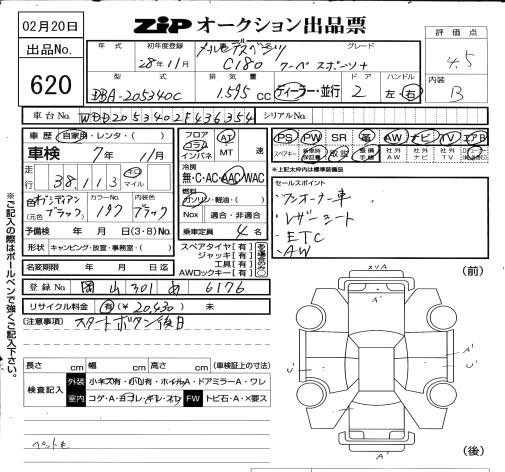 02月20日
ZiP オークション出品票
出品No.
620
年式
初年度登録
28年11月
メルセデスベンツ
C180
グレード
クーペスポーツ+
評価点
4.5
型式
DBA-205340C
排気量
1.595 cc
ディーラー・並行
ドア
2
ハンドル
左・右
内装
B
車台No.
WDD2053402F436354
シリアルNo.
車歴 自家用・レンタ・( )
車検 7年 11月
走行 38,113 キロ マイル
色(元色) オブシディアンブラック
カラーNo. 197
内装色 ブラック
予備検 年 月 日(3・8)No.
形状 キャンピング・放宣・事務室・( )
フロア コラム インパネ
AT MT 速
冷房 無・C・AC・AAC・WAC
燃料 ガソリン・軽油・( )
Nox 適合・非適合
乗車定員 4 名
PS PW SR 革 AW ナビ TV エアB
スペアキー 新車時保証書 取説 整備手帳 社外AW 社外ナビ 社外TV
※上記太枠内は標準装備品
セールスポイント
ワンオーナー車
レザーシート
ETC
AW
スペアタイヤ【有】
ジャッキ【有】
工具【有】
AWロックキー【有】
名変期限 年 月 日迄
登録No. 岡山 301 め 6176
リサイクル料金 有(¥20,430) 未
(注意事項) スタートボタン後日
※ご記入の際はボールペンで強くご記入下さい。
長さ cm 幅 cm 高さ cm (車検証上の寸法)
検査記入
外装 小キズ有・小凹有・ホイルA・ドアミラーA・ワレ
室内 コゲ・A・ヨゴレ・キレ・スレ FW トビ石・A・×要ス
(前)
(後)